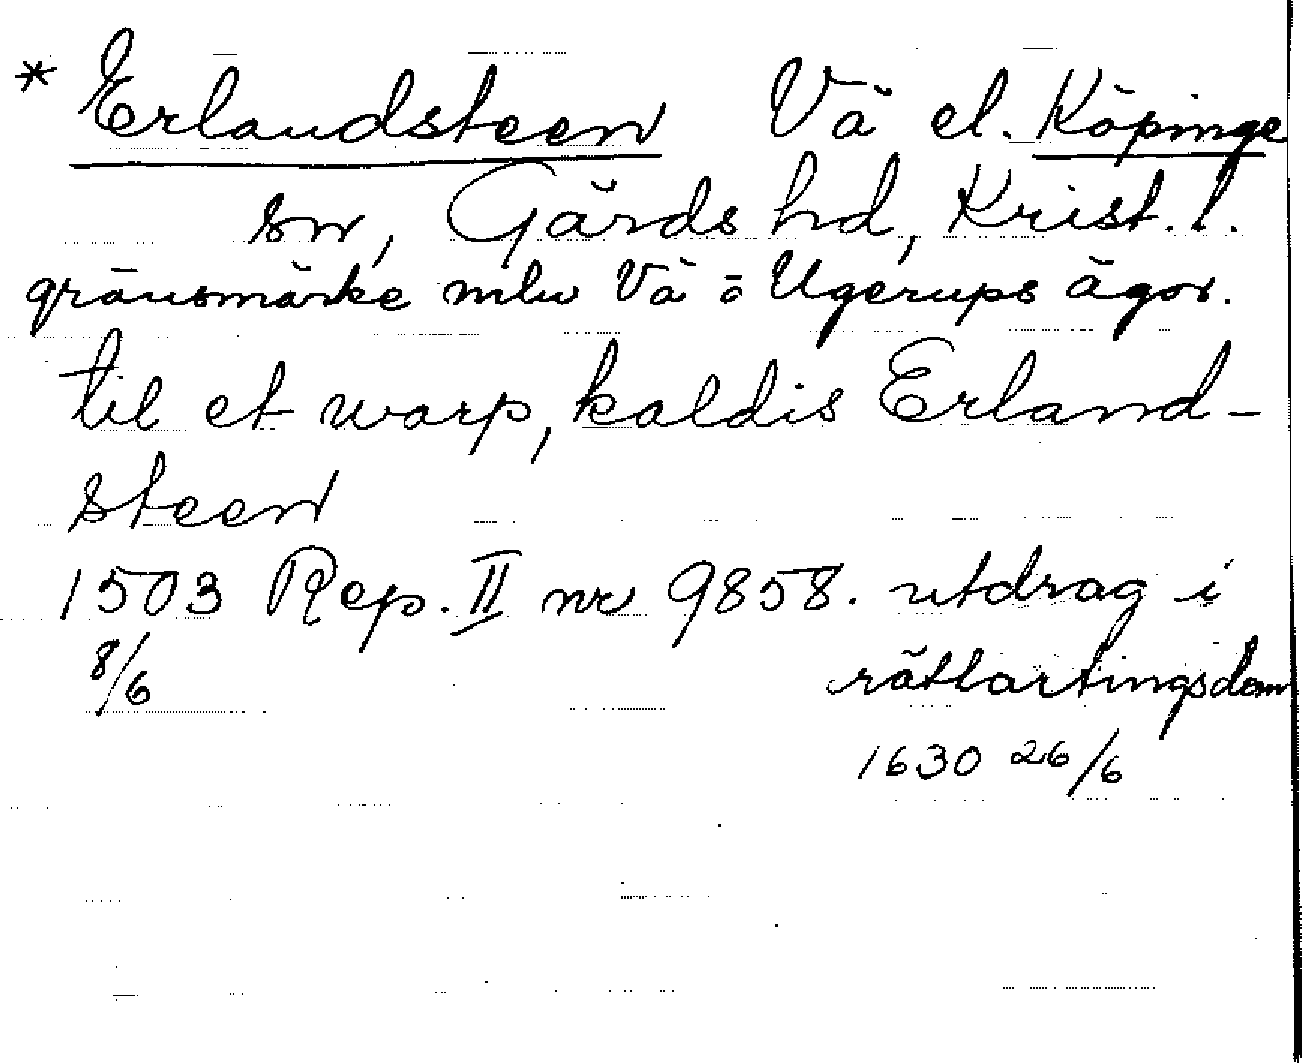 * Erlandsteen Vä el. Köpinge
sn, Gärds hd, Krist. l.
gränsmärke mlw Vä o Ugerups ägor.
til et warp, kaldis Erland-
steen
1503 Rep. II nr 9858. utdrag i
8/6 rättartingsdom
1630 26/6